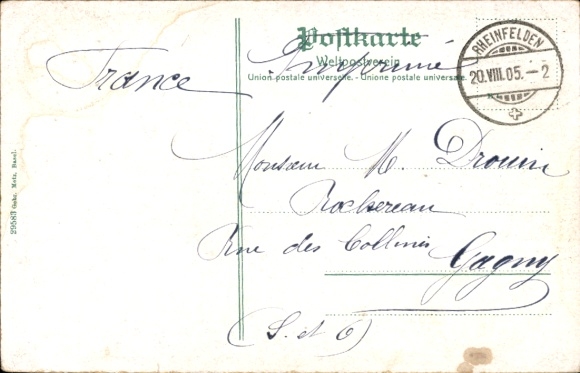 Postkarte
Weltpostverein
Union postale universelle. - Unione postale universale.
France
Imprimé
RHEINFELDEN
20.VIII.05.-2
Monsieur M. Drouin
Rochereau
Rue des Collines
Gagny
(S. et O)
29583 Gebr. Metz, Basel.